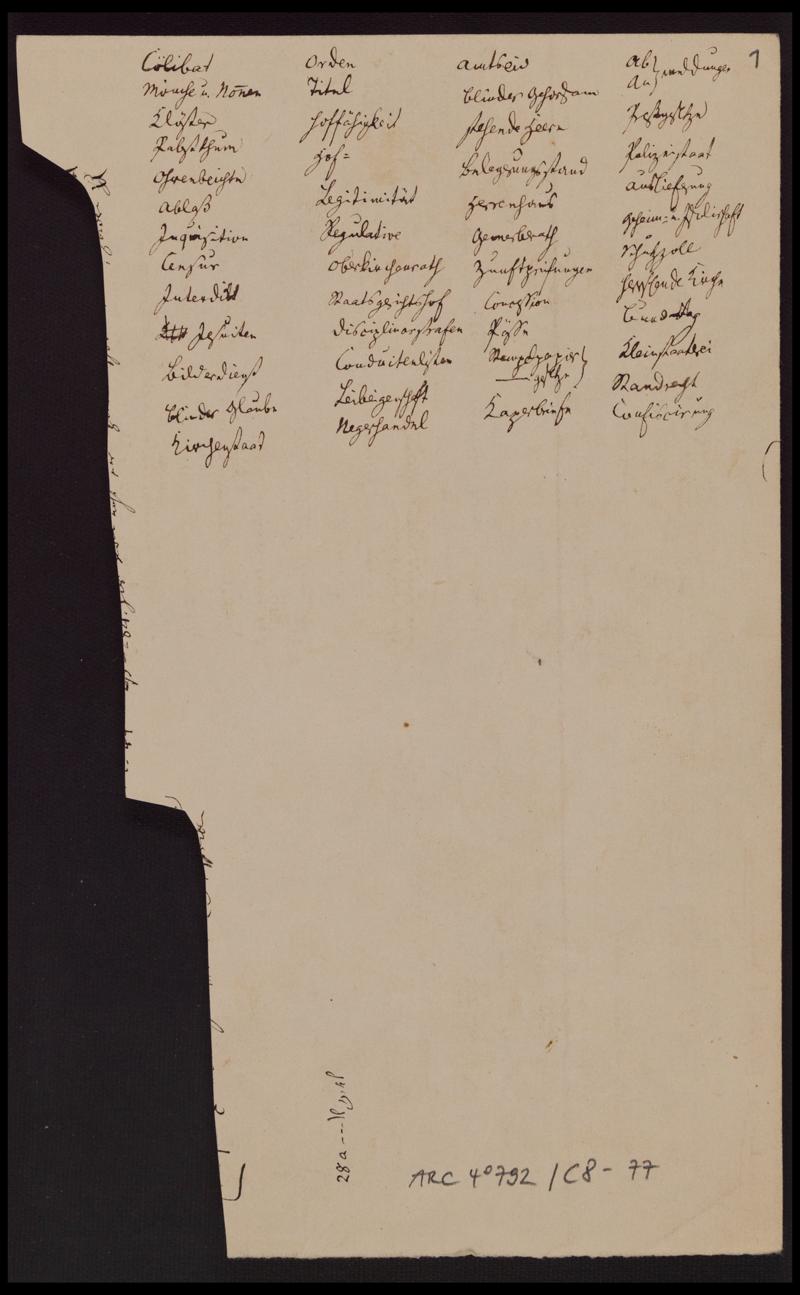 1
Cölibat
Mönche u. Nonen
Klöster
Pabstthum
Ohrenbeichte
Ablaß
Inquisition
Censur
Interdikt
Jesuiten
Bilderdienst
blinder Glaube
Kirchenstaat
Orden
Titel
Hoffähigkeit
Hof=
Legitimität
Regulative
Oberkirchenrath
Staatsgerichtshof
Disciplinarstrafen
Conduitenlisten
Leibeigenschaft
Negerhandel
Amtseid
blinder Gehorsam
stehende Heere
Belagerungsstand
Herrenhaus
Gewerberath
Zunftprüfungen
Concession
Pässe
Stempelpapier
— gesetze
Kaperbriefe
Ab
An } meldungen
Preßgesetze
Polizeistaat
Auslieferung
Geheim= u.
Schutzzoll
herrschende Kirche
Bundestag
Kleinstaaterei
Standrecht
Confiscirung
28a
ARC 4° 792 / C8 - 77